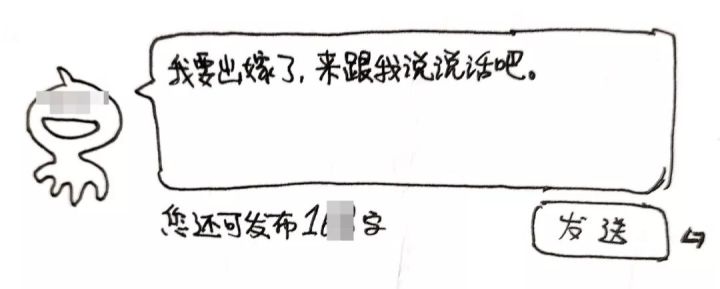 我要出嫁了，来跟我说说话吧。
您还可发布1 字
发送